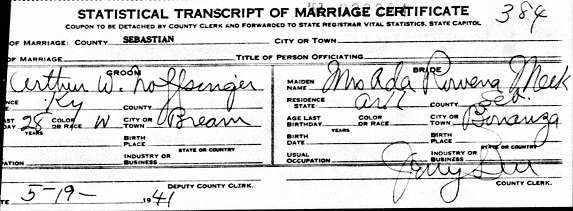 STATISTICAL TRANSCRIPT OF MARRIAGE CERTIFICATE 384
COUPON TO BE DETACHED BY COUNTY CLERK AND FORWARDED TO STATE REGISTRAR VITAL STATISTICS, STATE CAPITOL
OF MARRIAGE: COUNTY SEBASTIAN CITY OR TOWN
OF MARRIAGE TITLE OF PERSON OFFICIATING
GROOM BRIDE
Arthur W. Noffsinger MAIDEN NAME Mrs Ada Rowena Meek
NCE Ky COUNTY RESIDENCE STATE Ark COUNTY Seb.
AST DAY 28 YEARS COLOR OR RACE W CITY OR TOWN Bream AGE LAST BIRTHDAY YEARS COLOR OR RACE CITY OR TOWN Bonanza
BIRTH PLACE STATE OR COUNTRY BIRTH DATE BIRTH PLACE STATE OR COUNTRY
PATION INDUSTRY OR BUSINESS USUAL OCCUPATION INDUSTRY OR BUSINESS
TE 5-19- 1941 DEPUTY COUNTY CLERK. Jerry COUNTY CLERK.